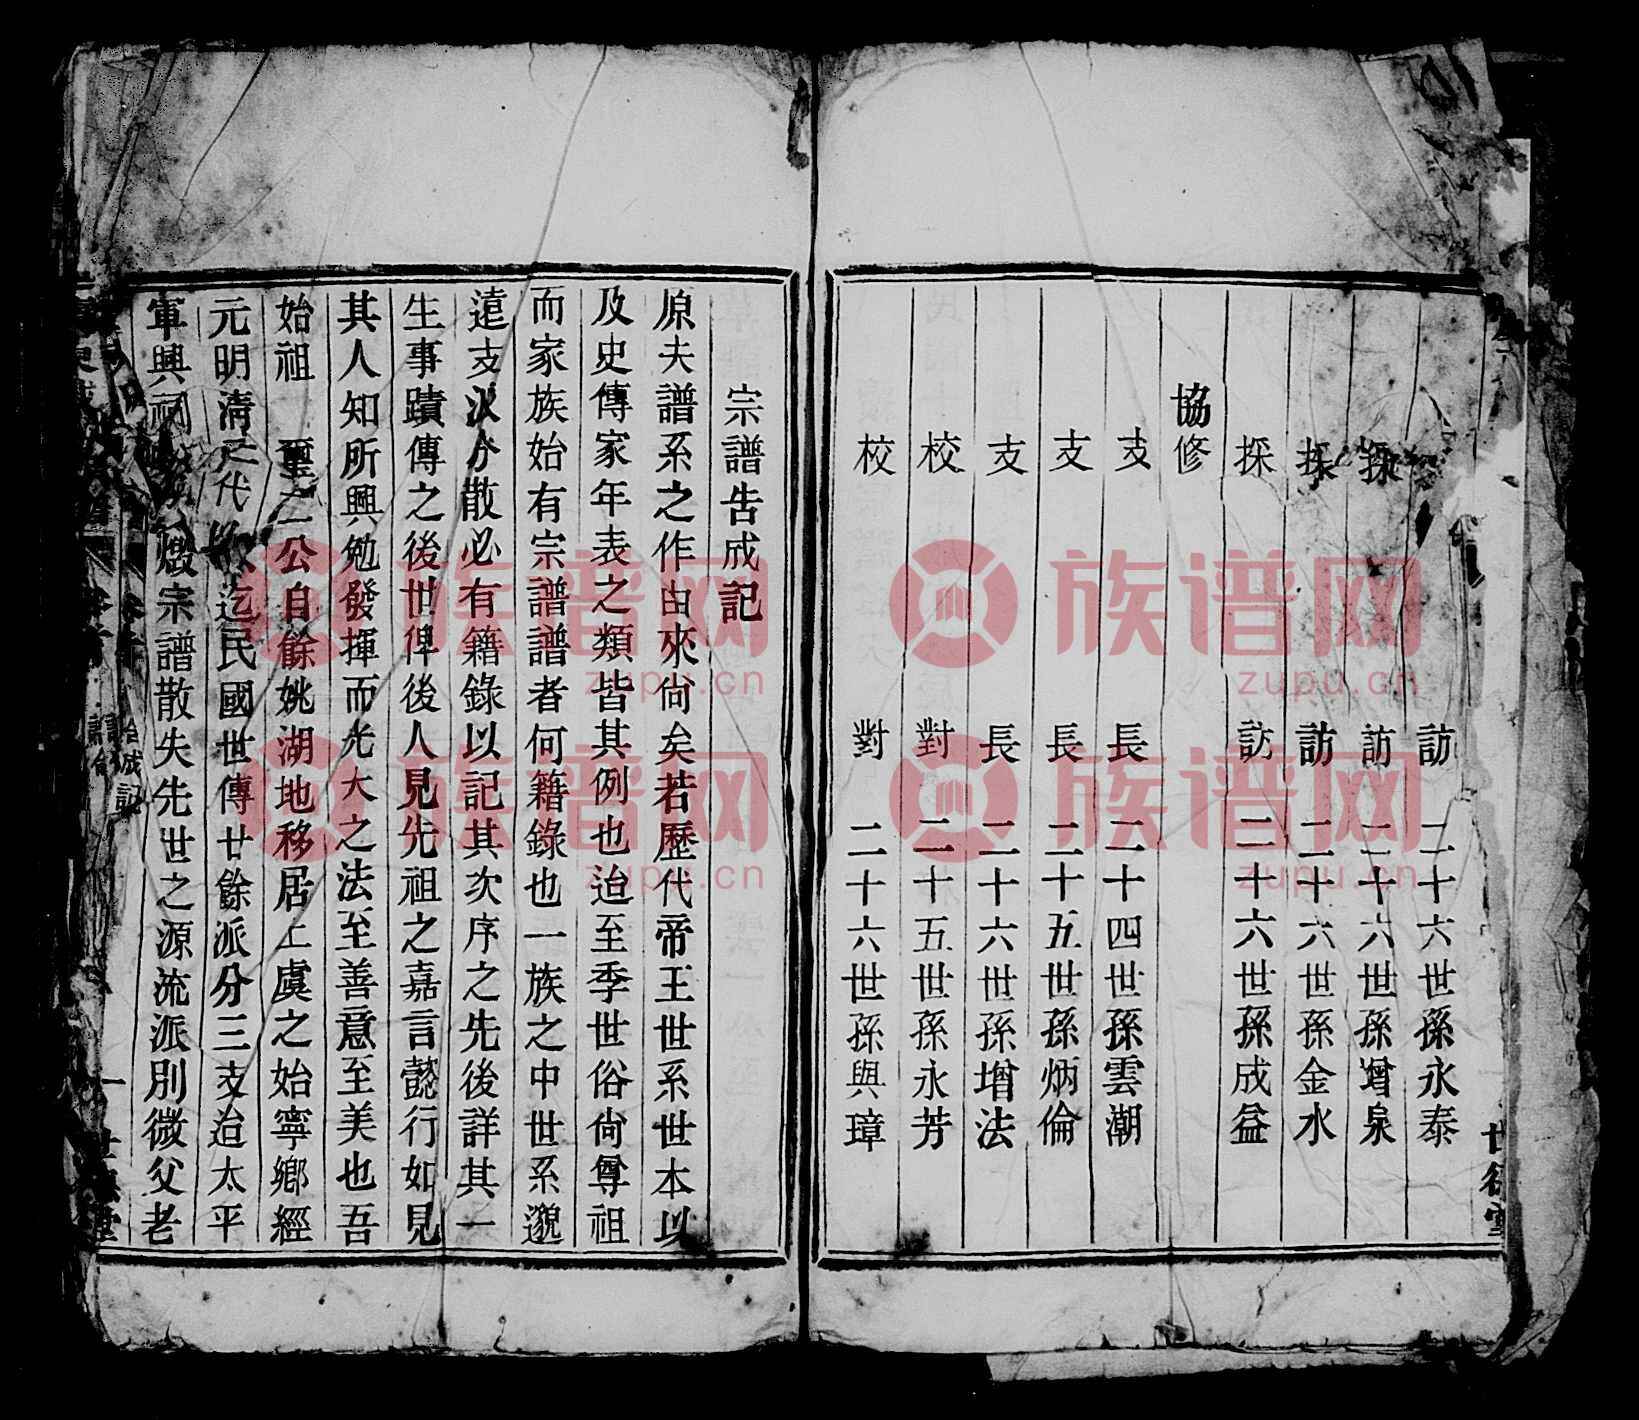 採訪 二十六世孫永泰
採訪 二十六世孫增泉
採訪 二十六世孫金水
採訪 二十六世孫成益
協修
支長 二十四世孫雲潮
支長 二十五世孫炳倫
支長 二十六世孫增法
校對 二十五世孫永芳
校對 二十六世孫與璋
宗譜告成記
原夫譜系之作由來尙矣若歷代帝王世系世本以
及史傳家年表之類皆其例也迨至季世俗尙尊祖
而家族始有宗譜譜者何籍錄也一族之中世系邈
遠支派分散必有籍錄以記其次序之先後詳其一
生事蹟傳之後世俾後人見先祖之嘉言懿行如見
其人知所興勉發揮而光大之法至善意至美也吾
始祖 聖一公自餘姚湖地移居上虞之始寧鄉經
元明清之代迄民國世傳廿餘派分三支迨太平
軍興祠燬宗譜散失先世之源流派別微父老
族谱网
zupu.cn
族谱网
zupu.cn
族谱网
zupu.cn
族谱网
zupu.cn